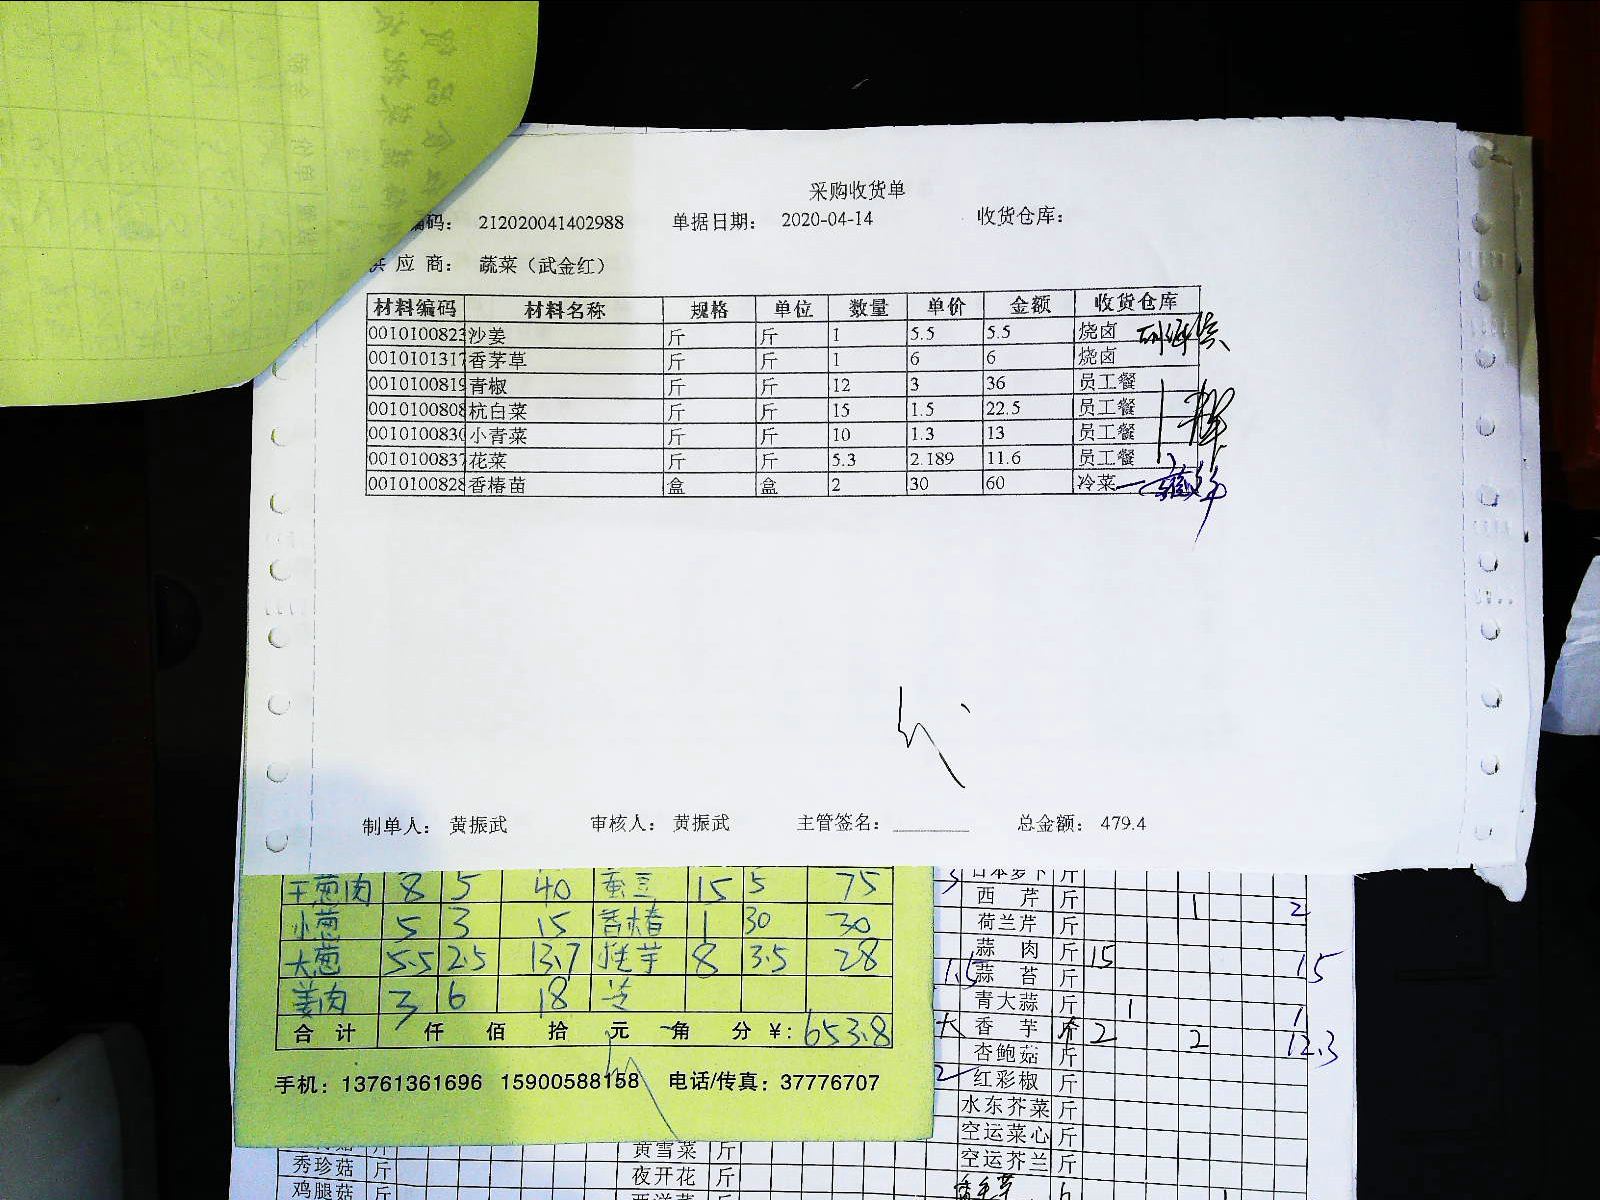 采购收货单
编码： 212020041402988 单据日期： 2020-04-14 收货仓库：
供 应 商： 蔬菜（武金红）
材料编码 材料名称 规格 单位 数量 单价 金额 收货仓库
0010100823 沙姜 斤 斤 1 5.5 5.5 烧卤
0010101317 香茅草 斤 斤 1 6 6 烧卤
0010100819 青椒 斤 斤 12 3 36 员工餐
0010100808 杭白菜 斤 斤 15 1.5 22.5 员工餐
0010100830 小青菜 斤 斤 10 1.3 13 员工餐
0010100837 花菜 斤 斤 5.3 2.189 11.6 员工餐
0010100828 香椿苗 盒 盒 2 30 60 冷菜
制单人： 黄振武 审核人： 黄振武 主管签名： 总金额： 479.4
干葱肉 8 5 40 蚕豆 15 5 75
小葱 5 3 15 香椿 1 30 30
大葱 5.5 2.5 13.7 芋 8 3.5 28
姜肉 3 6 18
合 计 仟 佰 拾 元 角 分 ¥: 653.8
手机：13761361696 15900588158 电话/传真：37776707
日本萝卜 斤
西 芹 斤 1 2
荷兰芹 斤
蒜 肉 斤 15 15
1.5 蒜 苔 斤
青大蒜 斤 1 1
香 芋 斤 2 2 12.3
杏鲍菇 斤
2 红彩椒 斤
水东芥菜 斤
空运菜心 斤
空运芥兰 斤
黄雪菜 斤
秀珍菇 斤 夜开花 斤
鸡腿菇 斤 西洋菜 斤